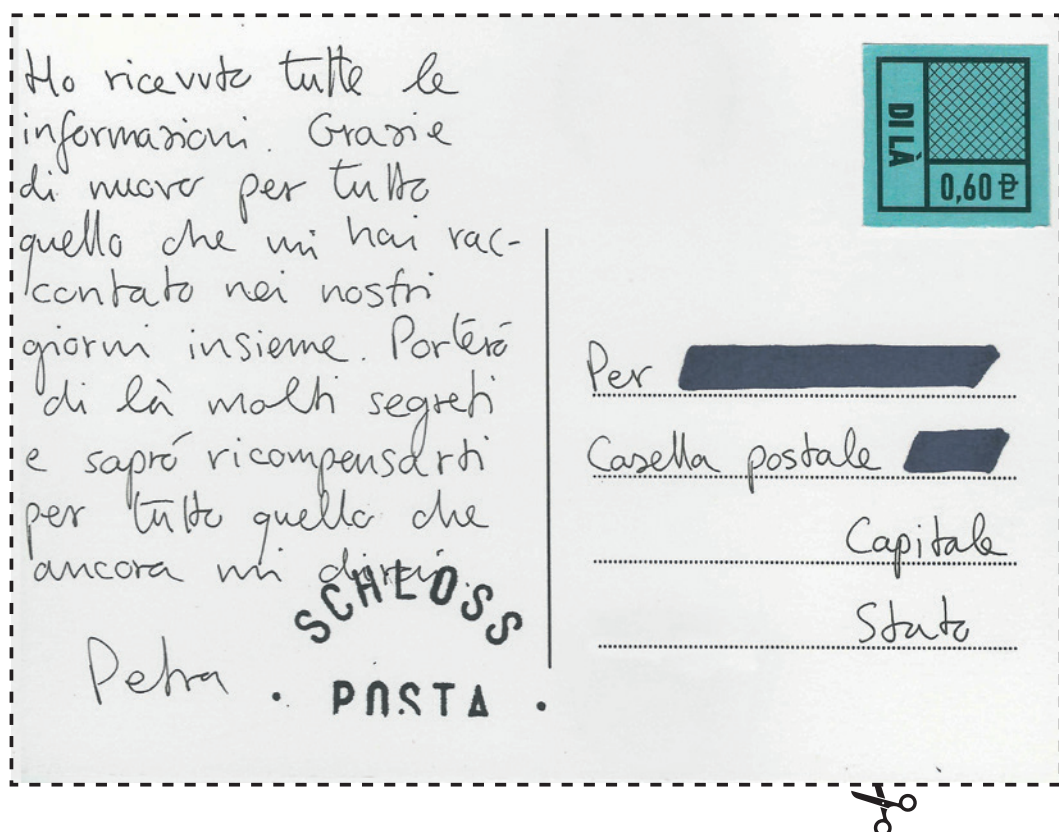 Ho ricevuto tutte le
informazioni. Grazie
di nuovo per tutto
quello che mi hai rac-
contato nei nostri
giorni insieme. Porterò
di là molti segreti
e saprò ricompensarti
per tutto quello che
ancora mi dirai.
Petra
SCHLOSS
POSTA
DI LÀ
0,60 ₽
Per
Casella postale
Capitale
Stato